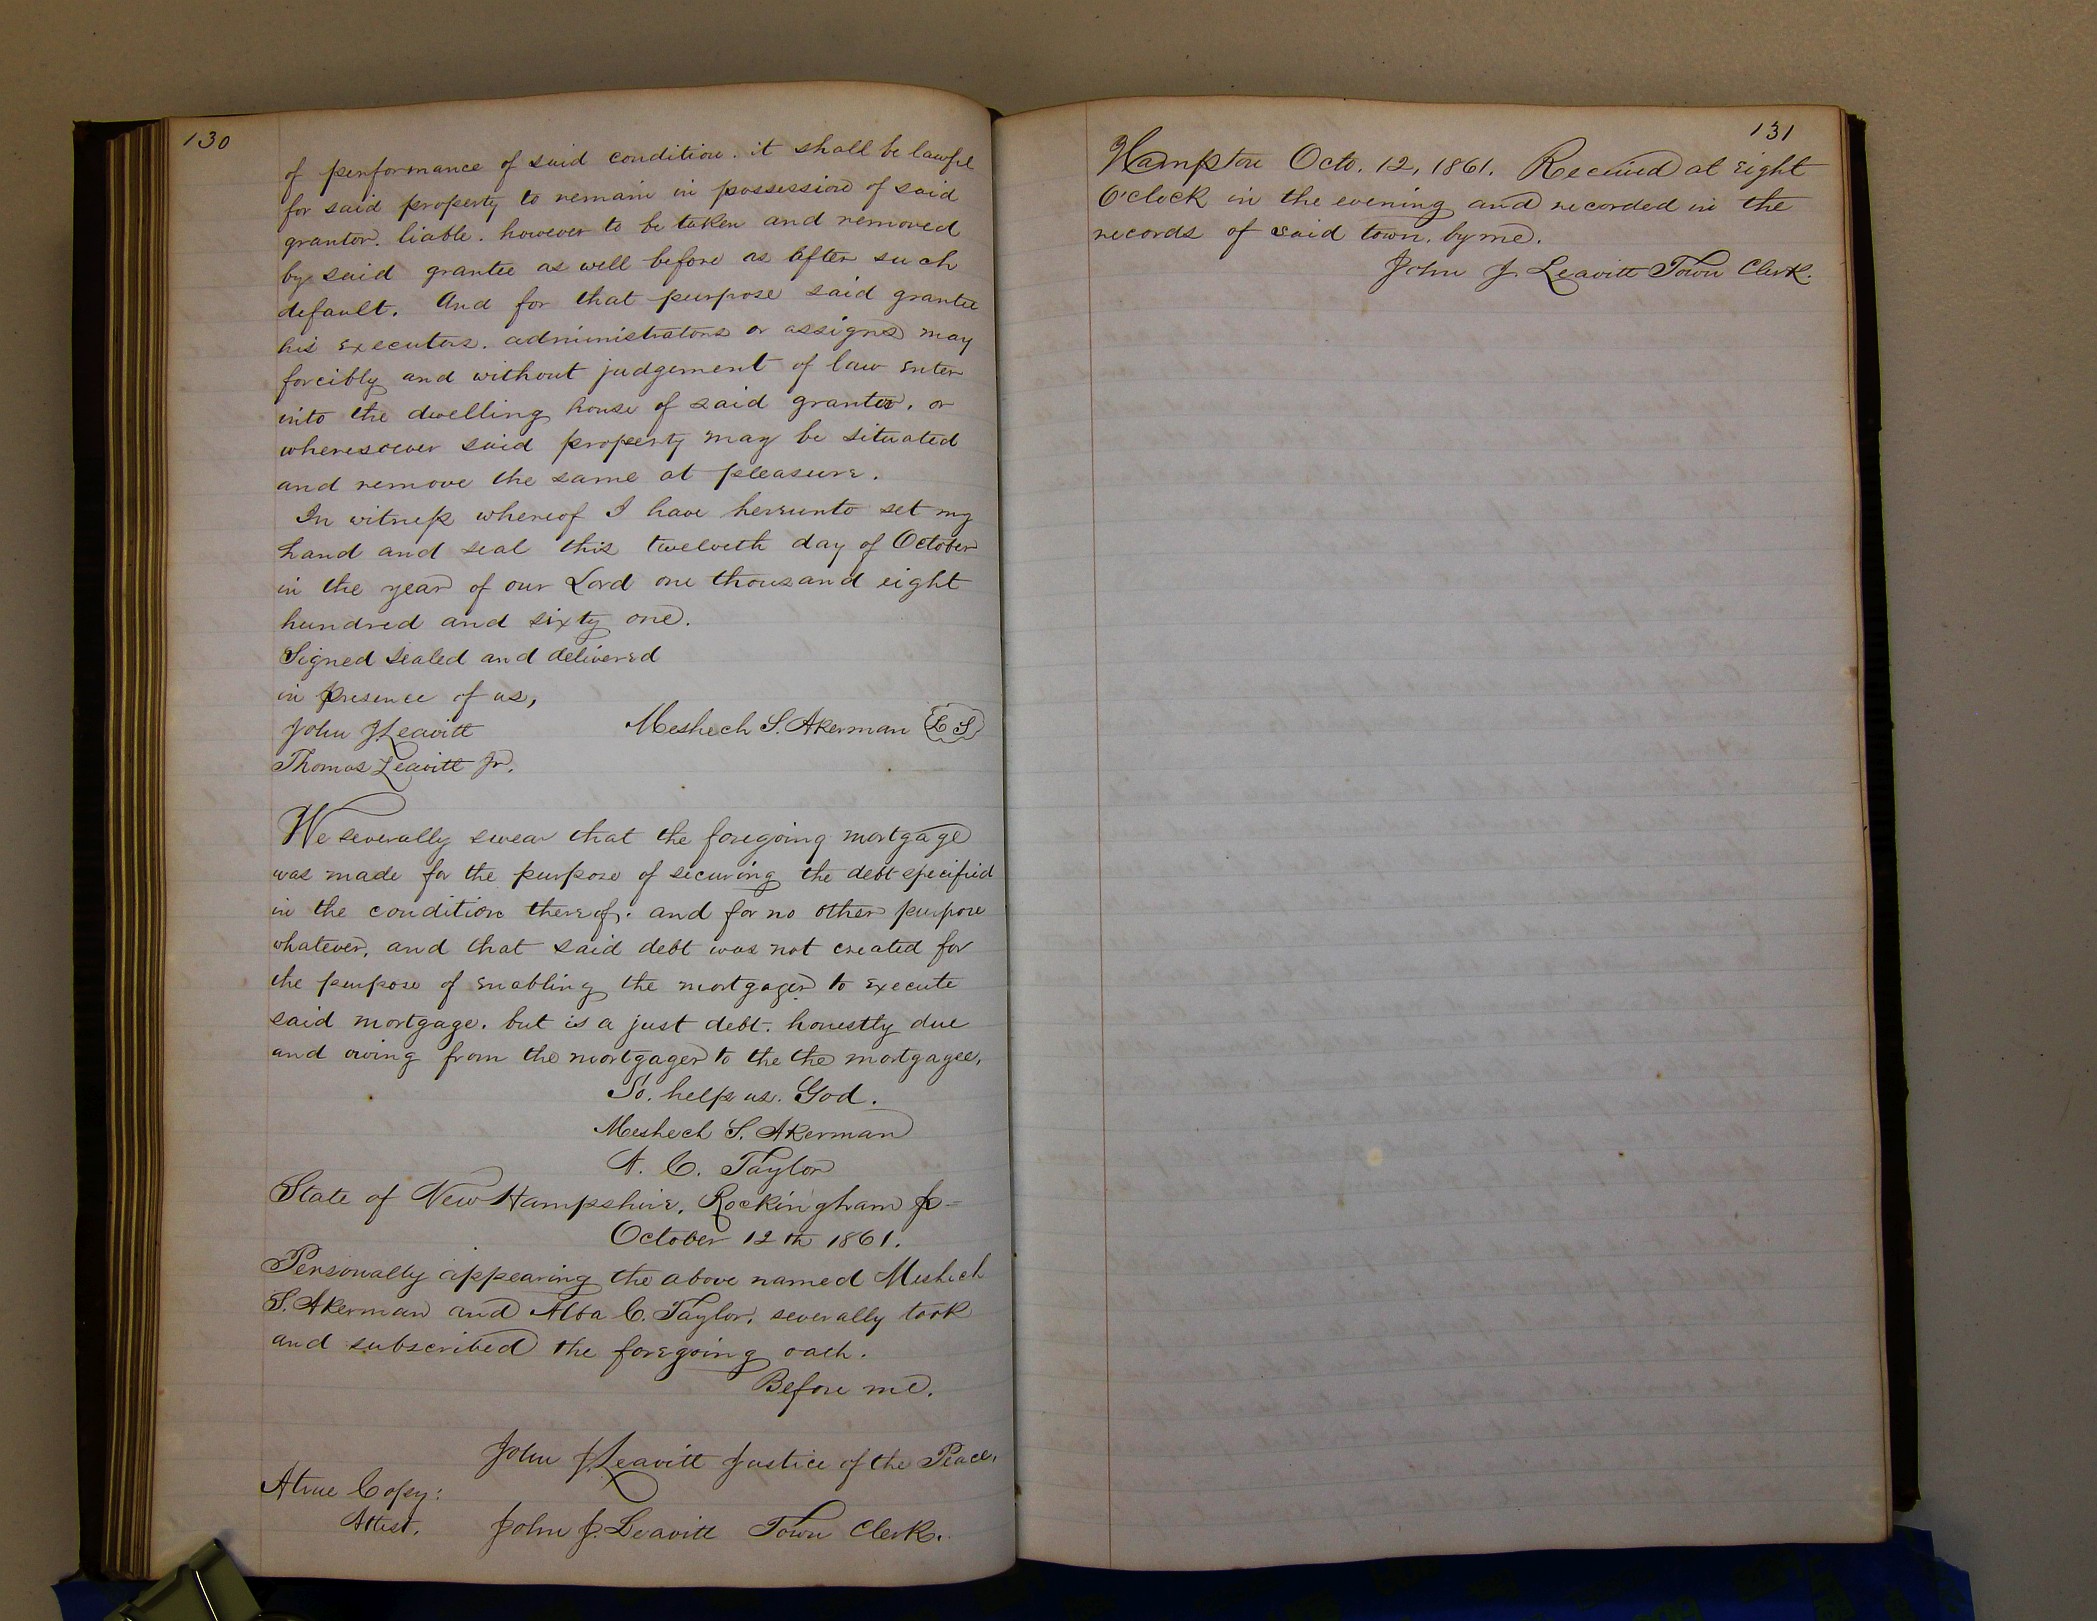 130
of performance of said condition. it shall be lawful
for said property to remain in possession of said
grantor. liable. however to be taken and removed
by said grantee as well before as after such
default. And for that purpose said grantee
his executors. administrators or assigns may
forcibly and without judgement of law enter
into the dwelling house of said grantor, or
wheresoever said property may be situated
and remove the same at pleasure.
In witness whereof I have hereunto set my
hand and seal this twelveth day of October
in the year of our Lord one thousand eight
hundred and sixty one.
Signed Sealed and delivered
in presence of us,
John J. Leavitt Meshech S. Akerman L S
Thomas Leavitt Jr.
We severally swear that the foregoing mortgage
was made for the purpose of securing the debt specified
in the condition thereof. and for no other purpose
whatever, and that said debt was not created for
the purpose of enabling the mortgager to execute
said mortgage. but is a just debt. honestly due
and owing from the mortgager to the the mortgagee,
So. help us. God.
Meshech S. Akerman
A. C. Taylor
State of New Hampshire, Rockingham ss-
October 12th 1861.
Personally appearing the above named Meshech
S. Akerman and Alba C. Taylor, severally took
and subscribed the foregoing oath.
Before me.
John J. Leavitt Justice of the Peace,
A true Copy:
Attest, John J. Leavitt Town Clerk.
131
Hampton Octo. 12, 1861. Received at eight
O'clock in the evening and recorded in the
records of said town. by me.
John J. Leavitt Town Clerk.